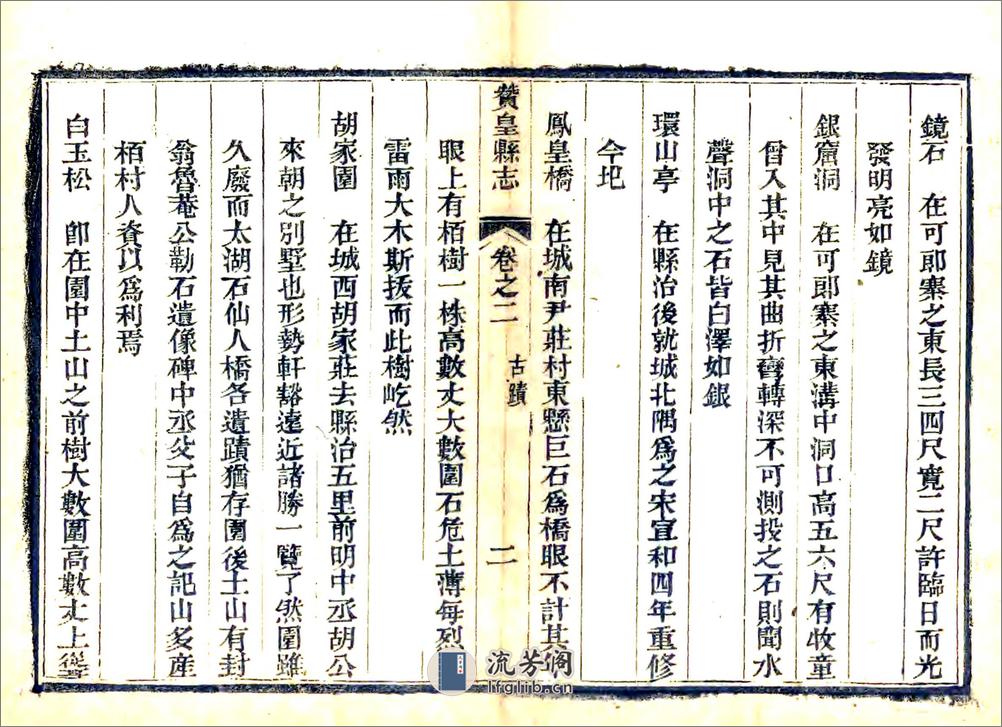 鏡石　在可郎寨之東長三四尺寬二尺許臨日而光
發明亮如鏡
銀窟洞　在可郎寨之東溝中洞口高五六尺有牧童
曾入其中見其曲折彎轉深不可測投之石則聞水
聲洞中之石皆白澤如銀
環山亭　在縣治後就城北隅爲之宋宣和四年重修
今圯
鳳皇橋　在城南尹莊村東懸巨石爲橋眼不計其
贊皇縣志　卷之二　古蹟　二
眼上有栢樹一株高數丈大數圍石危土薄每烈
雷雨大木斯拔而此樹屹然
胡家園　在城西胡家莊去縣治五里前明中丞胡公
來朝之別墅也形勢軒豁遠近諸勝一覽了然園雖
久廢而太湖石仙人橋各遺蹟猶存園後土山有封
翁魯菴公勒石遺像碑中丞父子自爲之記山多産
栢村人資以爲利焉
白玉松　卽在園中土山之前樹大數圍高數丈上
流芳閣
lfglib.cn